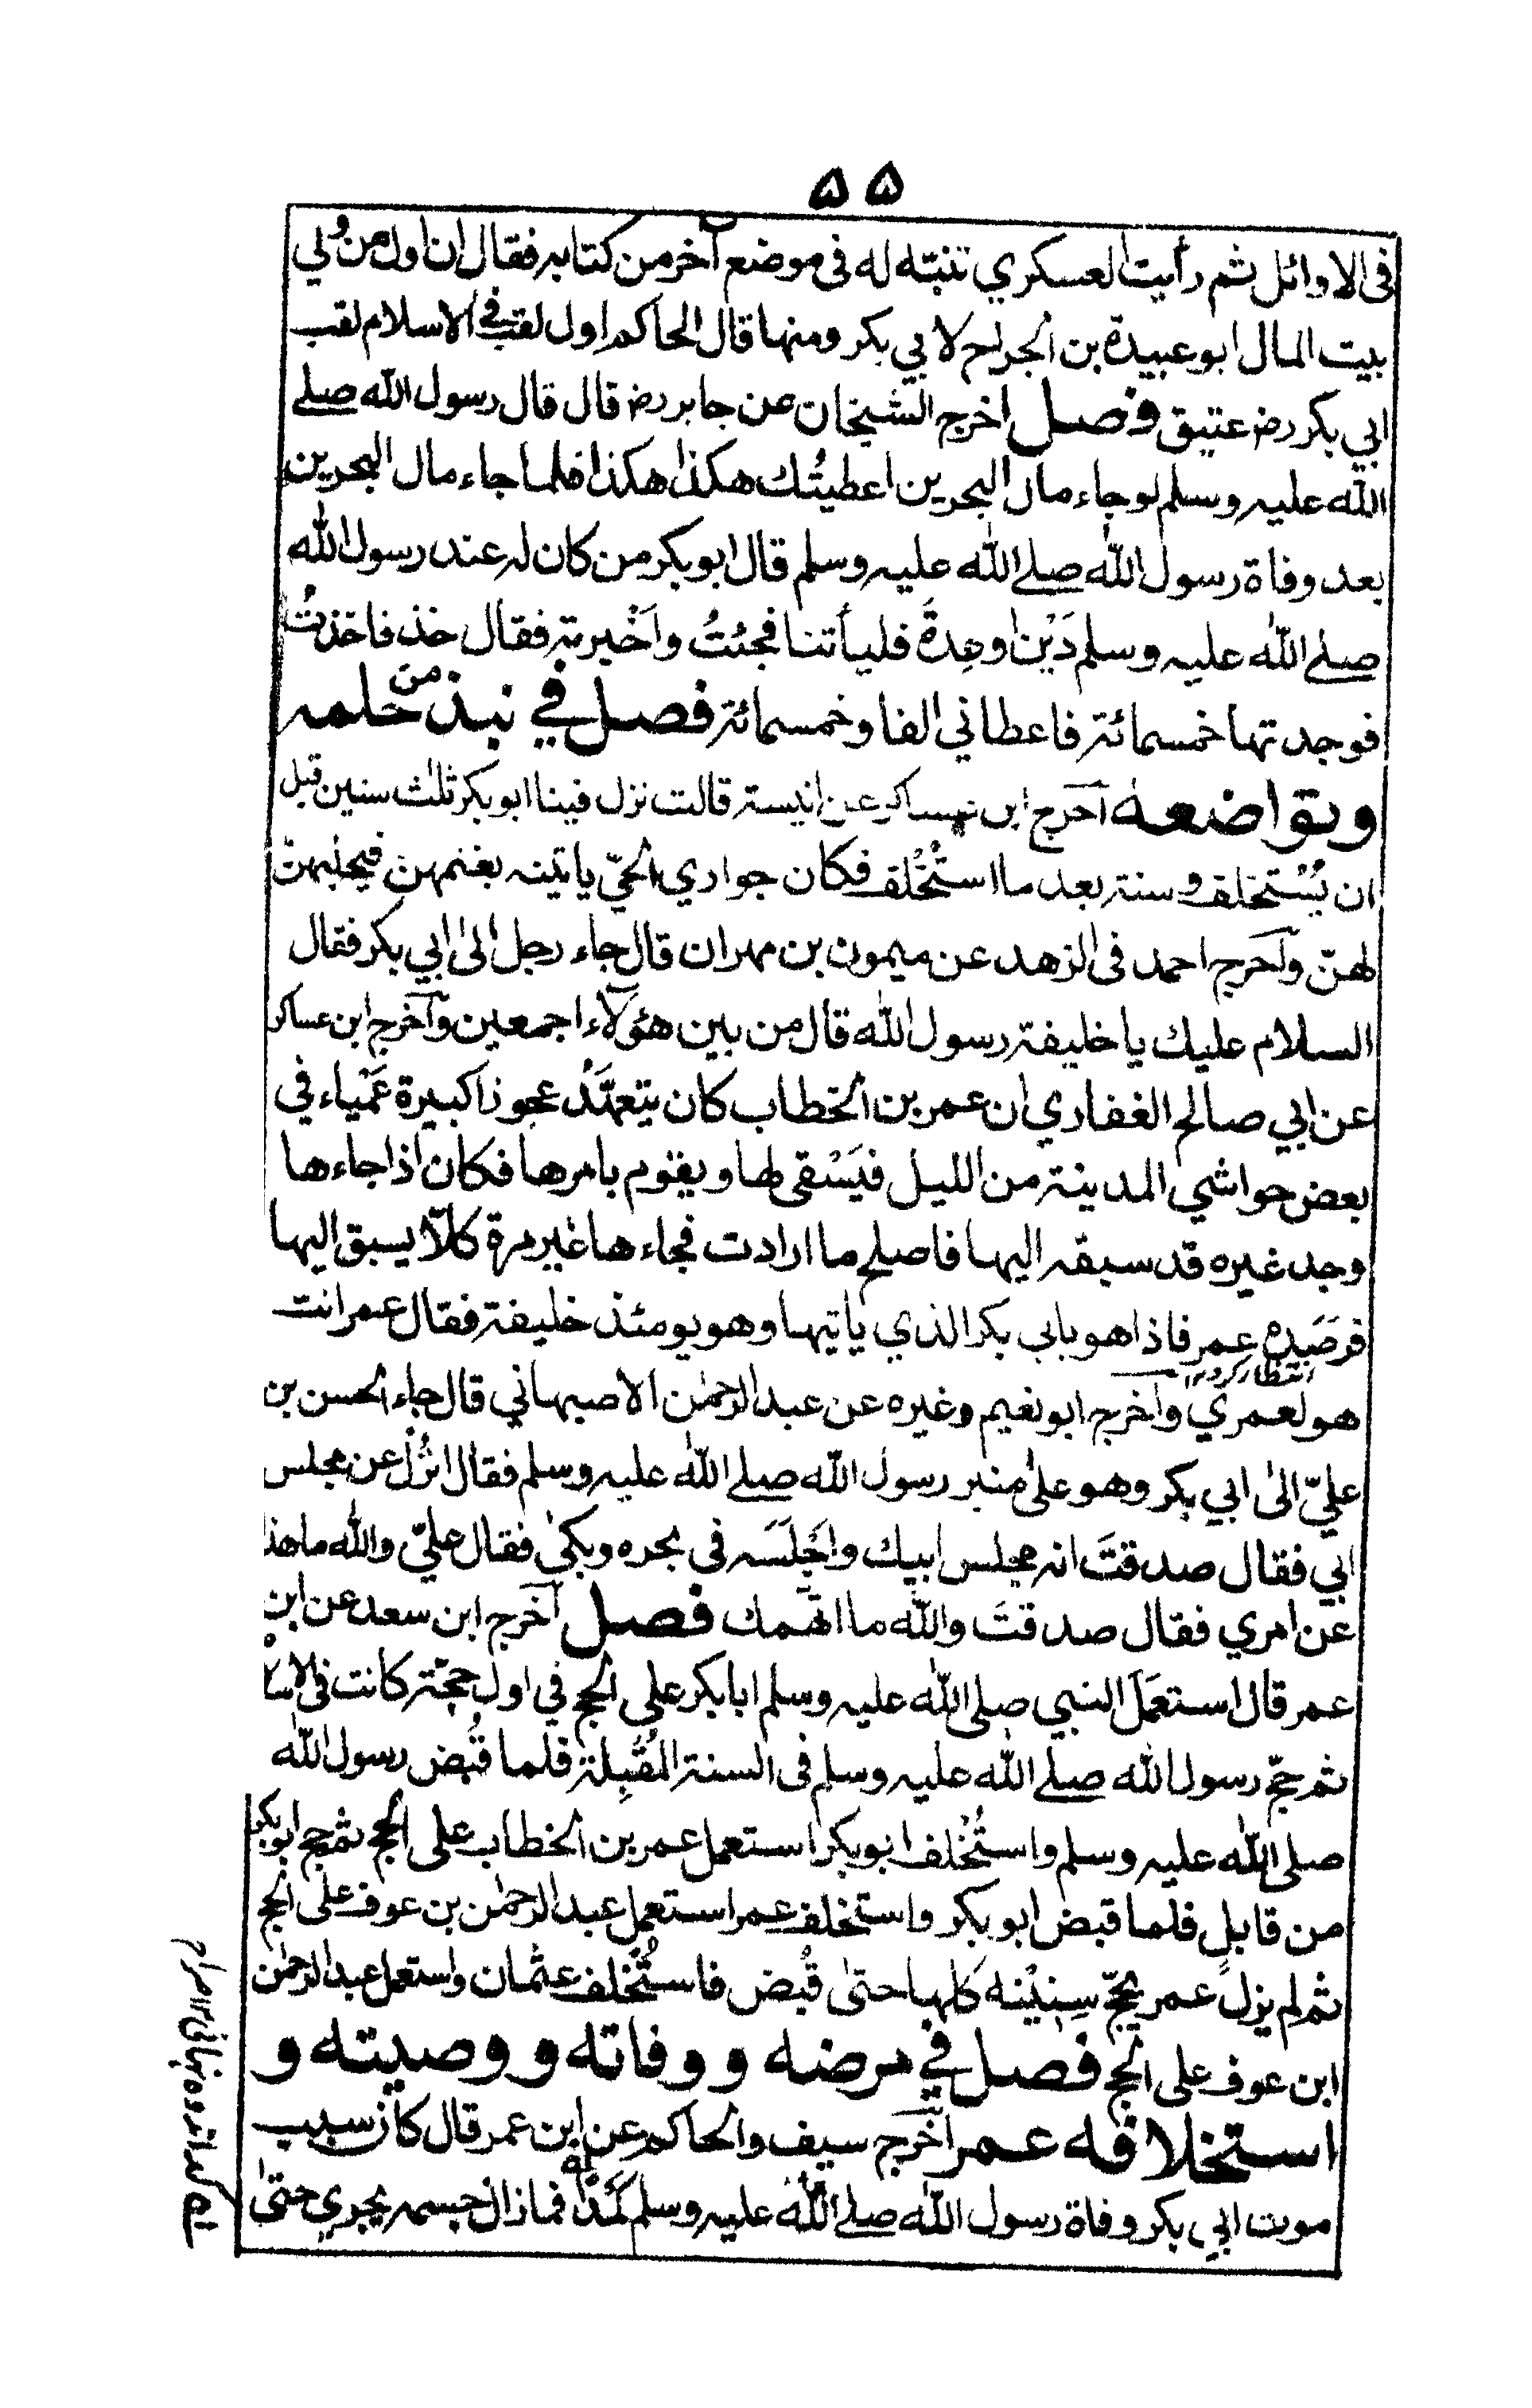 ٥٥
فى الاوائل ثم رأيت العسكري تنبّه له فى موضع آخر من كتابه فقال ان اول من وُلي
بيت المال ابو عبيدة بن الجراح لابي بكر ومنها قال الحاكم اول لقب فى الاسلام لقب
ابي بكر رض عتيق فصل اخرج الشيخان عن جابر رض قال قال رسول الله صلے
الله عليه وسلم لو جاء مال البحرين اعطيتُك هكذا هكذا فلما جاء مال البحرين
بعد وفاة رسول الله صلے الله عليه وسلم قال ابو بكر من كان له عند رسول الله
صلے الله عليه وسلم دَيْن او عِدةً فليأتنا فجئتُ واَخْبرته فقال خذ فاخذتُ
فوجدتها خمسمائة فاعطاني الفا وخمسمائة فصل في نبذ من حلمه
وتواضعه آخرج ابن عساكر عن انيسة قالت نزل فينا ابو بكر ثلٰث سنين قبل
ان يُسْتخلف وسنة بعد ما استُخْلف فكان جواري الحيّ ياتينه بغنمهن فيحلبهن
لهنّ وآخرج احمد فى الزهد عن ميمون بن مهران قال جاء رجل الىٰ ابي بكر فقال
السلام عليك يا خليفة رسول الله قال من بين هٰؤلآء اجمعين وآخرج ابن عساكر
عن ابي صالح الغفاري ان عمر بن الخطاب كان يتعهّدُ عجوزا كبيرة عَمْياء في
بعض حواشي المدينة من الليل فيَسْقى لها ويقوم بامرها فكان اذا جاءها
وجد غيره قد سبقه اليها فاصلح ما ارادت فجاءها غير مرة كلّا يسبق اليها
فرصَدهٖ عمر فاذا هو بابي بكر الذي ياتيها وهو يومئذ خليفة فقال عمر انت
انتظار كردہ ١٢
هو لعمري وآخرج ابو نعيم وغيره عن عبد الرحمٰن الاصبهاني قال جاء الحسن بن
عليّ الىٰ ابي بكر وهو علىٰ منبر رسول الله صلے الله عليه وسلم فقال انْزُلْ عن مجلس
ابي فقال صدقتَ انه مجلس ابيك واَجْلَسَه فى حجره وبكىٰ فقال عليّ والله ما هذا
عن امري فقال صدقتَ والله ما اتّهمك فصل آخرج ابن سعد عن ابن
عمر قال استعمَلَ النبي صلى الله عليه وسلم ابا بكر على الحج في اول حجّة كانت فى الاسلام
ثم حجّ رسول الله صلے الله عليه وسلم فى السنة المُقْبِلة فلما قُبض رسول الله
صلى الله عليه وسلم واستُخْلف ابو بكر استعمل عمر بن الخطاب على الحج ثم حج ابو بكر
من قابلٍ فلما قبض ابو بكر واستخلف عمر استعمل عبد الرحمٰن بن عوف على الحج
ثم لم يزل عمر يحجّ سِنِيْنَه كلها حتىٰ قُبض فاستُخْلف عثمان واستعمل عبد الرحمٰن
ابن عوف على الحج فصل في مرضه ووفاته ووصيته و
استخلافه عمر آخرج سيف والحاكم عن ابن عمر قال كان سبب
موت ابي بكر وفاة رسول الله صلے الله عليه وسلم كَمَدًا فما زال جسمه يجري حتىٰ